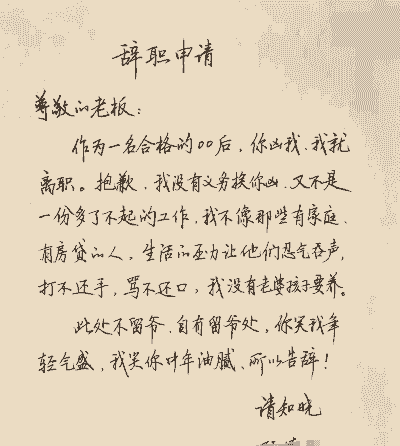 辞职申请
尊敬的老板：
作为一名合格的00后，你凶我，我就
离职。抱歉，我没有义务挨你凶，又不是
一份多了不起的工作，我不像那些有家庭，
有房贷的人，生活的压力让他们忍气吞声，
打不还手，骂不还口，我没有老婆孩子要养。
此处不留爷，自有留爷处，你笑我年
轻气盛，我笑你中年油腻，所以告辞！
请知晓